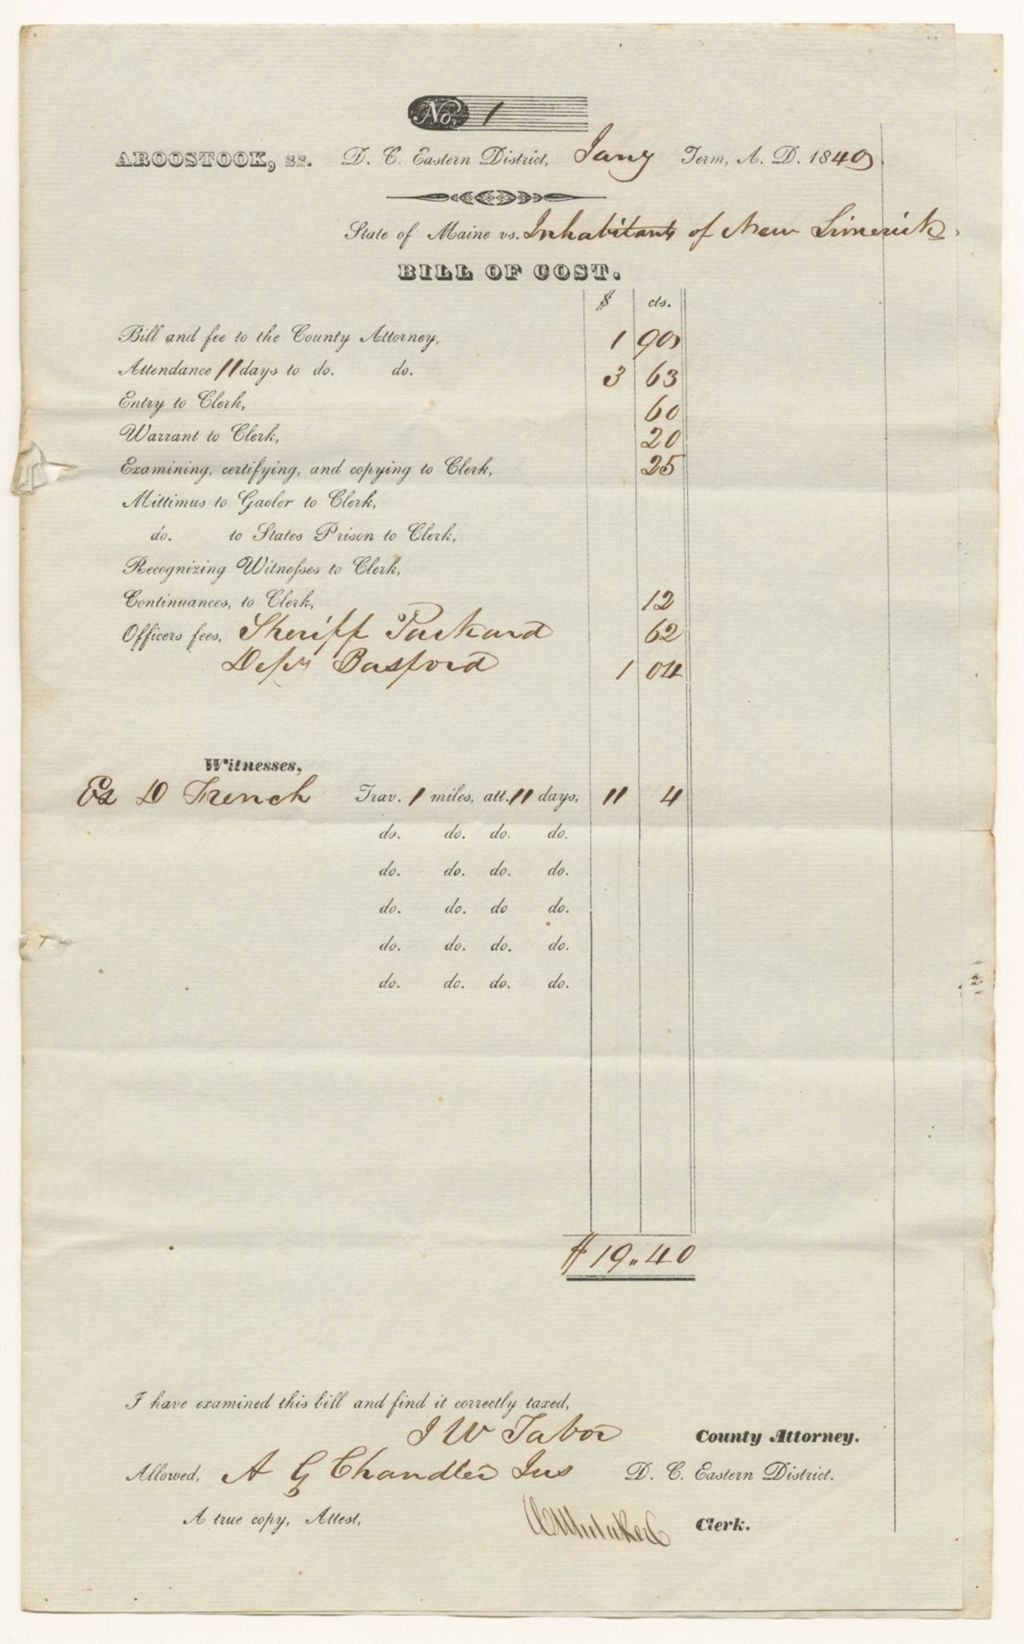 No. 1
AROOSTOOK, ss. D. C. Eastern District, Jany Term, A. D. 1840.
State of Maine vs. Inhabitants of New Limerick.
BILL OF COST.
$ cts.
Bill and fee to the County Attorney, 1 90
Attendance 11 days to do. do. 3 63
Entry to Clerk, 60
Warrant to Clerk, 20
Examining, certifying, and copying to Clerk, 25
Mittimus to Gaoler to Clerk,
do. to States Prison to Clerk,
Recognizing Witnesses to Clerk,
Continuances, to Clerk, 12
Officers fees, Sheriff Packard 62
Depy Basford 1 04
Witnesses,
Ez D French Trav. 1 miles, att. 11 days, 11 4
do. do. do. do.
do. do. do. do.
do. do. do do.
do. do. do. do.
do. do. do. do.
$19.40
I have examined this bill and find it correctly taxed,
J W Tabor County Attorney.
Allowed, A G Chandler Jus D. C. Eastern District.
A true copy, Attest,
Clerk.